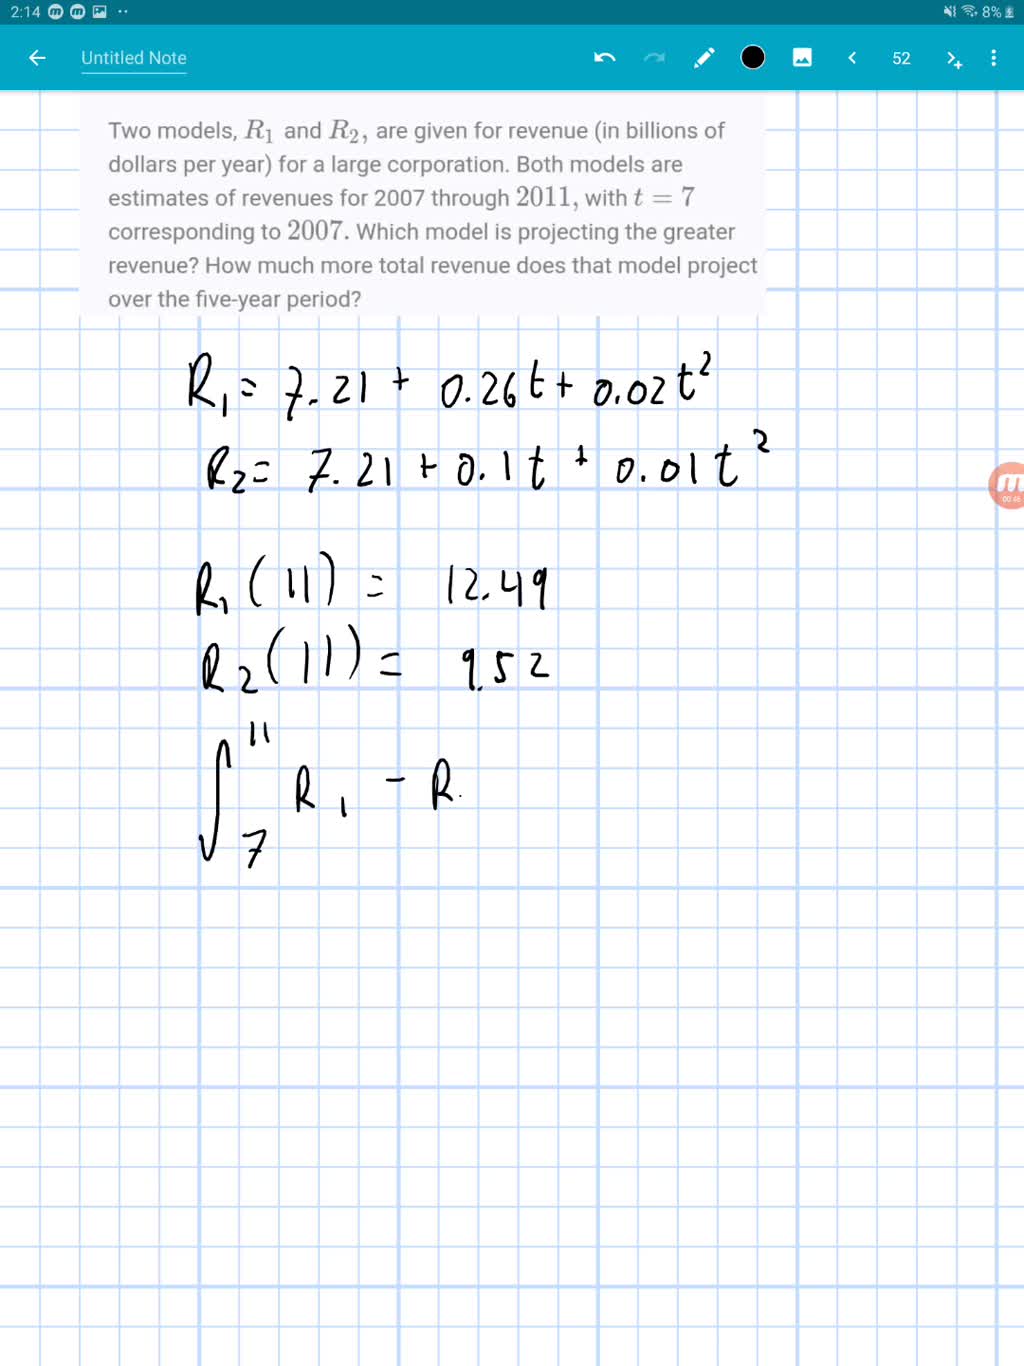 2:14 8%
Untitled Note 52
Two models, R₁ and R₂, are given for revenue (in billions of
dollars per year) for a large corporation. Both models are
estimates of revenues for 2007 through 2011, with t = 7
corresponding to 2007. Which model is projecting the greater
revenue? How much more total revenue does that model project
over the five-year period?
R₁ = 7.21 + 0.26t + 0.02t²
R₂ = 7.21 + 0.1t + 0.01t²
00:46
R₁(11) = 12.49
R₂(11) = 9.52
∫₇¹¹ R₁ - R